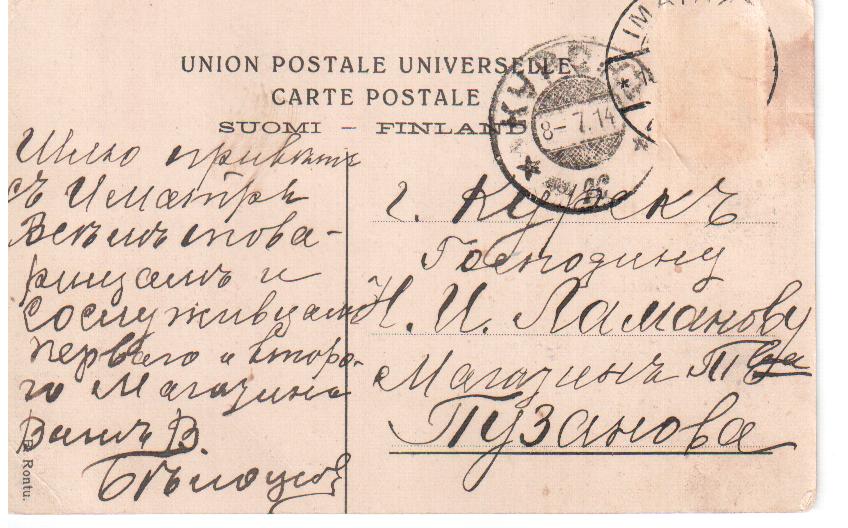 UNION POSTALE UNIVERSELLE
CARTE POSTALE
SUOMI – FINLAND
IMATRA
КУРСК
8-7.14
Шлю приветъ
съ Иматры
Всѣмъ това-
рищамъ и
сослуживцамъ
перваго и второ-
го Магазина
Вашъ В.
г. Курскъ
Господину
Н. И. Ламанову
Магазинъ Т-ва
Пузанова
Rontu.